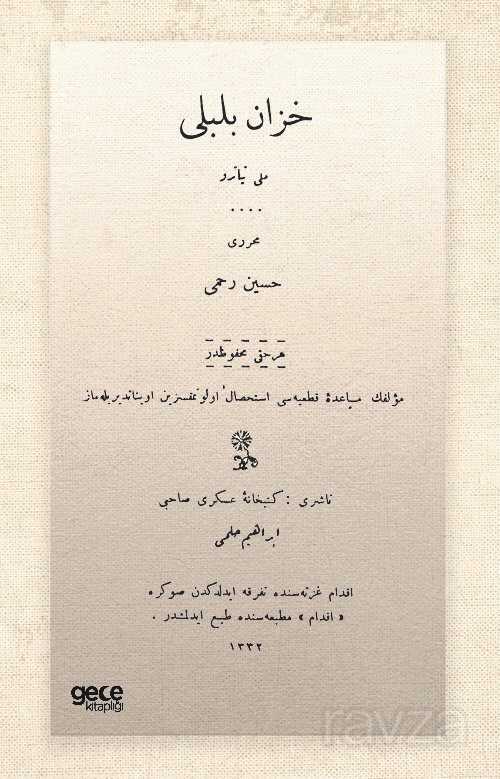 خزان بلبلی
ملی تیاترو
....
محرری
حسین رحمی
هرحقی محفوظدر
مؤلفك مساعدهٔ قطعیه‌سی استحصال اولونمقسزین اوینانديریله‌ماز
ناشری : كتبخانهٔ عسكری صاحبی
ابراهیم حلمی
اقدام غزته‌سنده تفرقه ایدلدكدن صوكره
« اقدام » مطبعه‌سنده طبع ایدلمشدر .
۱۳۳۲
gece
kitaplığı
ravza